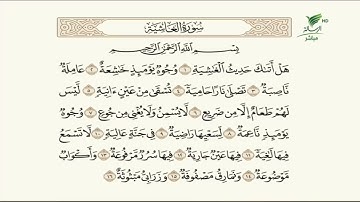 سُورَةُ الْغَاشِيَةِ
بِسْمِ اللَّهِ الرَّحْمَٰنِ الرَّحِيمِ
هَلْ أَتَىٰكَ حَدِيثُ الْغَٰشِيَةِ ١ وُجُوهٌ يَوْمَئِذٍ خَٰشِعَةٌ ٢ عَامِلَةٌ
نَّاصِبَةٌ ٣ تَصْلَىٰ نَارًا حَامِيَةً ٤ تُسْقَىٰ مِنْ عَيْنٍ ءَانِيَةٍ ٥ لَّيْسَ
لَهُمْ طَعَامٌ إِلَّا مِن ضَرِيعٍ ٦ لَّا يُسْمِنُ وَلَا يُغْنِي مِن جُوعٍ ٧ وُجُوهٌ
يَوْمَئِذٍ نَّاعِمَةٌ ٨ لِّسَعْيِهَا رَاضِيَةٌ ٩ فِي جَنَّةٍ عَالِيَةٍ ١٠ لَّا تَسْمَعُ
فِيهَا لَٰغِيَةً ١١ فِيهَا عَيْنٌ جَارِيَةٌ ١٢ فِيهَا سُرُرٌ مَّرْفُوعَةٌ ١٣ وَأَكْوَابٌ
مَّوْضُوعَةٌ ١٤ وَنَمَارِقُ مَصْفُوفَةٌ ١٥ وَزَرَابِيُّ مَبْثُوثَةٌ ١٦
HD
مباشر